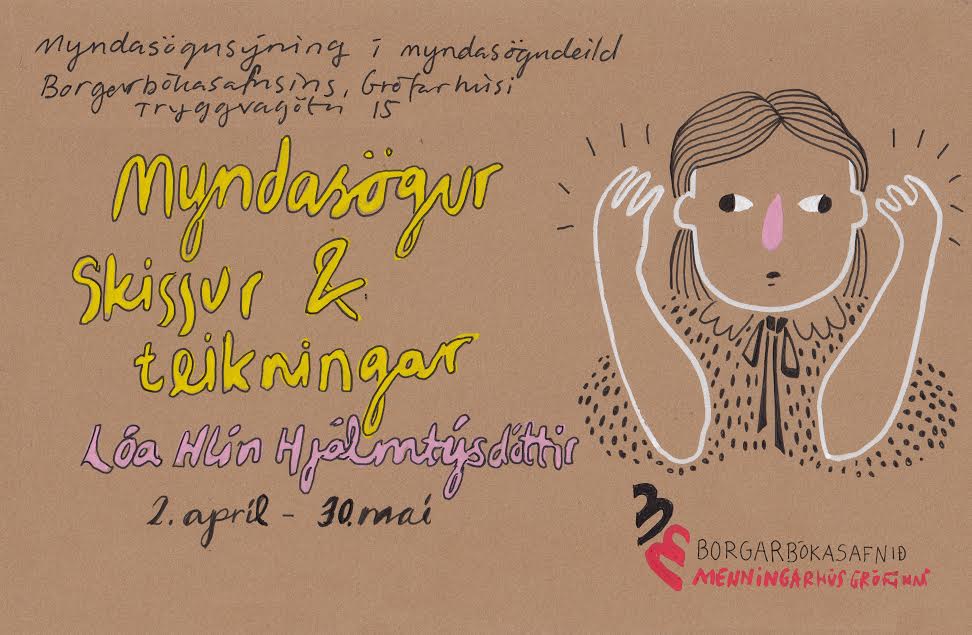 Myndasögusýning í myndasögudeild
Borgarbókasafnsins, Grófarhúsi
Tryggvagötu 15
Myndasögur
Skissur &
teikningar
Lóa Hlín Hjálmtýsdóttir
2. apríl - 30. maí
BORGARBÓKASAFNIÐ
MENNINGARHÚS GRÓFINNI